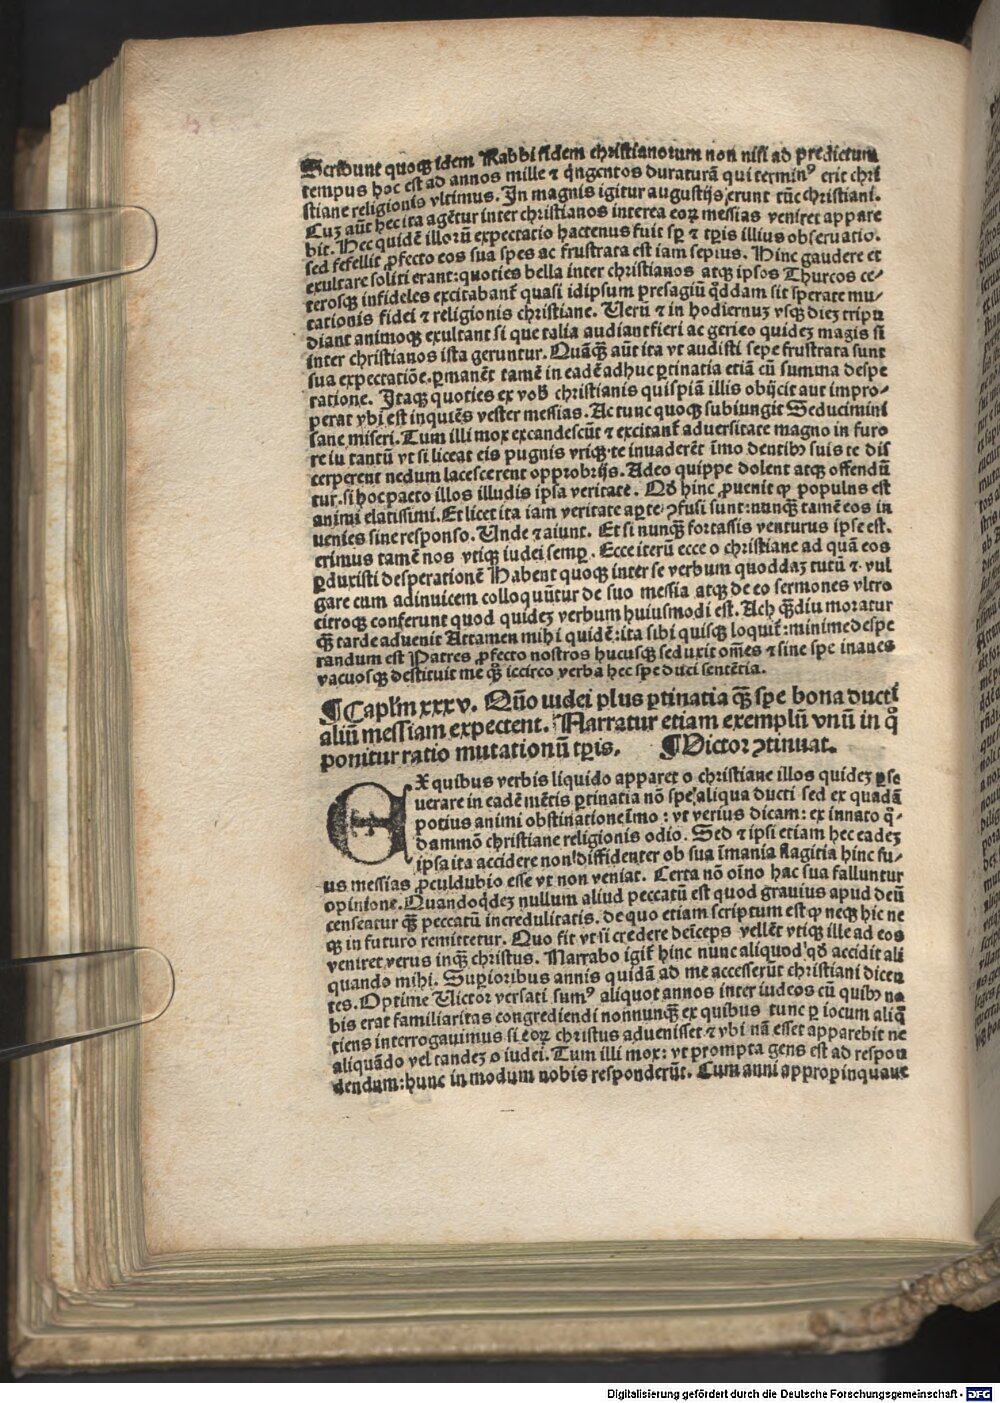 Scribunt quoqꝫ idem Rabbi fidem christianorum non nisi ad predictum
tempus hoc est ad annos mille ⁊ qͥngentos duraturā qui terminꝰ erit chri
stiane religionis vltimus. In magnis igitur augustijs erunt tūc christiani.
Cuꝫ aūt hec ita agētur inter christianos interea eoꝝ messias veniret appare
bit. Hec quidē illorū expectatio hactenus fuit sꝑ ⁊ tꝑis illius obseruatio.
sed fefellit ꝓfecto eos sua spes ac frustrata est iam sepius. Hinc gaudere et
exultare soliti erant: quoties bella inter christianos atqꝫ ipsos Thurcos ce/
terosqꝫ infideles excitabant̄ quasi idipsum presagiū qͦddam sit sperate mu/
tationis fidei ⁊ religionis christiane. Uerū ⁊ in hodiernuꝫ vsqꝫ dieꝫ tripu
diant animoqꝫ exultant si que talia audiant fieri ac geri eo quideꝫ magis si
inter christianos ista geruntur. Quāqꝫ̄ aūt ita vt audisti sepe frustrata sunt
sua expectatiōe. ꝑmanēt tamē in eadē adhuc ꝑtinatia etiā cū summa despe
ratione. Itaqꝫ quoties ex vob̄ christianis quispiā illis obijcit aut impro/
perat vbi est inquiēs vester messias. Ac tunc quoqꝫ subiungit Seducimini
sane miseri. Tum illi mox excandescūt ⁊ excitant̄ aduersitate magno in furo
re iu tantū vt si liceat eis pugnis vtriqꝫ te inuaderēt īmo dentibꝫ suis te dis
cerperent nedum lacescerent opprobrijs. Adeo quippe dolent atqꝫ offendū
tur. si hoc pacto illos illudis ipsa veritate. Qd̄ hinc ꝓuenit ꝙ populus est
animi elatissimi. Et licet ita iam veritate aꝑte ꝯfusi sunt: nunqꝫ̄ tamē eos in
uenies sine responso. Unde ⁊ aiunt. Et si nunqꝫ̄ fortassis venturus ipse est.
erimus tamē nos vtiqꝫ iudei semꝑ. Ecce iterū ecce o christiane ad quā eos
ꝑduxisti desperationē Habent quoqꝫ inter se verbum quoddaꝫ tutū ⁊ vul
gare cum adinuicem colloquūtur de suo messia atqꝫ de eo sermones vltro
citroqꝫ conferunt quod quideꝫ verbum huiusmodi est. Ach qꝫ̄diu moratur
qꝫ̄ tarde aduenit Attamen mihi quidē: ita sibi quisqꝫ loquit̄: minime despe
randum est Patres ꝓfecto nostros hucusqꝫ seduxit om̄es ⁊ sine spe inanes
vacuosqꝫ destituit me qꝫ̄ iccirco verba hec spe duci sentētia.
¶ Caplm̄ xxxv. Quō iudei plus ꝑtinatia qꝫ̄ spe bona ducti
aliū messiam expectent. Narratur etiam exemplū vnū in qͦ
ponitur ratio mutationū tꝑis. ¶ Uictor ꝯtinuat.
EX quibus verbis liquido apparet o christiane illos quideꝫ ꝑse
uerare in eadē mētis ꝑtinatia nō spe aliqua ducti sed ex quadā
potius animi obstinatione īmo: vt verius dicam: ex innato qͦ⸗
dammō christiane religionis odio. Sed ⁊ ipsi etiam hec eadeꝫ
ipsa ita accidere non diffidenter ob sua īmania flagitia hinc su/
us messias ꝓculdubio esse vt non veniat. Certa nō oīno hac sua falluntur
opinione. Quandoqͥdeꝫ nullum aliud peccatū est quod grauius apud deū
censeatur qꝫ̄ peccatū incredulitatis. de quo etiam scriptum est ꝙ neqꝫ hic ne
qꝫ in futuro remittetur. Quo fit vt si credere deīceps vellēt vtiqꝫ ille ad eos
veniret verus inqꝫ̄ christus. Narrabo igit̄ hinc nunc aliquod qd̄ accidit ali
quando mihi. Suꝑioribus annis quidā ad me accesserūt christiani dicen
tes. Optime Uictor versati sumꝰ aliquot annos inter iudeos cū quibꝫ no
bis erat familiaritas congrediendi nonnunqꝫ̄ ex quibus tunc ꝑ locum aliqͦ
tiens interrogauimus si eoꝝ christus aduenisset ⁊ vbi nā esset apparebit ne
aliquādo vel tandeꝫ o iudei. Tum illi mox: vt prompta gens est ad respon
dendum: hunc in modum nobis responderūt. Cum anni appropinquaue
Digitalisierung gefördert durch die Deutsche Forschungsgemeinschaft - DFG